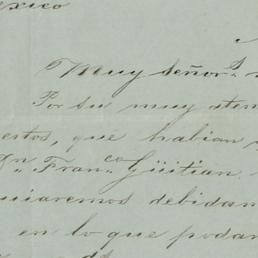 exico
Muy Señor.s
Por su muy aten
estos, que habian
Fran.co Güitian
uiaremos debidam
en lo que podam